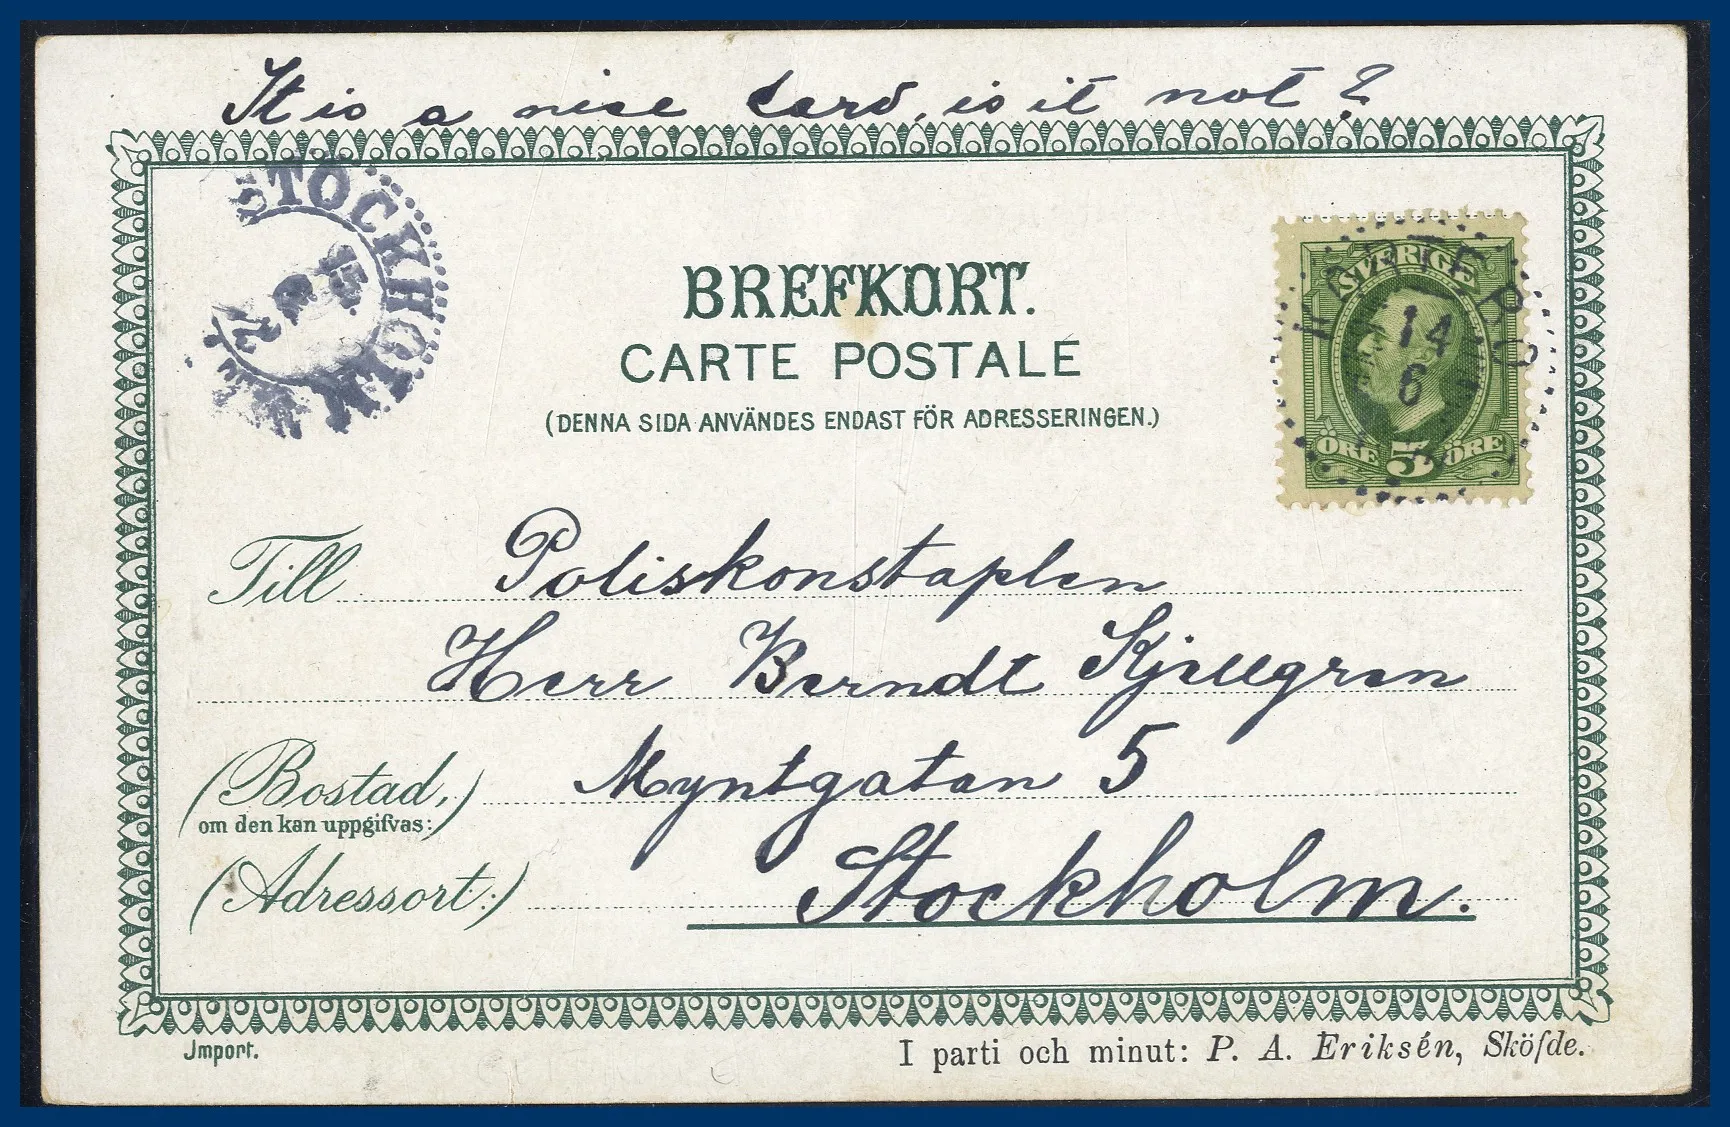 It is a nice card, is it not?
STOCKHOLM
BREFKORT.
CARTE POSTALE
(DENNA SIDA ANVÄNDES ENDAST FÖR ADRESSERINGEN.)
SVERIGE
14
6
ÖRE 5 ÖRE
Till Poliskonstaplen
Herr Berndt Kjellgren
(Bostad,) Myntgatan 5
om den kan uppgifvas:
(Adressort:) Stockholm.
Import.
I parti och minut: P. A. Eriksén, Sköfde.